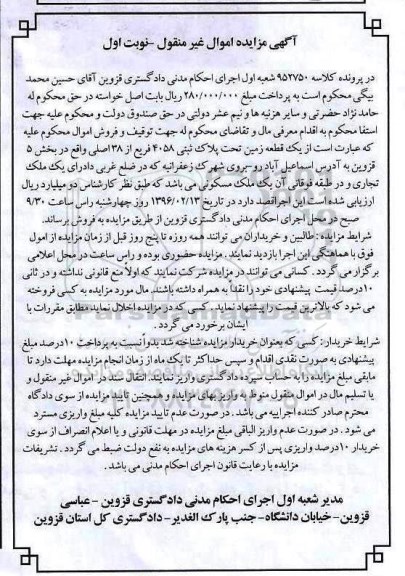 آگهی مزایده اموال غیر منقول -نوبت اول
در پرونده کلاسه ۹۵۲۷۵۰ شعبه اول اجرای احکام مدنی دادگستری قزوین آقای حسین محمد
بیگی محکوم است به پرداخت مبلغ ۲۸۰/۰۰۰/۰۰۰ ریال بابت اصل خواسته در حق محکوم له
حامد نژاد حضرتی و سایر هزینه ها و نیم عشر دولتی در حق صندوق دولت و محکوم علیه جهت
استفا محکوم به اقدام معرفی مال و تقاضای محکوم له جهت توقیف و فروش اموال محکوم علیه
که عبارت است از یک قطعه زمین تحت پلاک ثبتی ۴۰۵۸ فریع از ۳۸اصلی واقع در بخش ۵
قزوین به آدرس اسماعیل آباد روبروی شهرک زعفرانیه که در ضلع غربی دادرای یک ملک
تجاری و در طبقه فوقانی آن یک ملک مسکونی می باشد که طبق نظر کارشناس دو میلیارد ریال
ارزیابی شده است این اجراقصد دارد در تاریخ ۱۳۹۶/۰۲/۱۳ روز چهارشنبه راس ساعت ۹/۳۰
صبح در محل اجرای احکام مدنی دادگستری قزوین از طریق مزایده به فروش برساند.
شرایط مزایده : طالبین و خریداران می توانند همه روزه تا پنج روز قبل از زمان مزایده از امول
فوق با هماهنگی این اجرا بازدید نمایند . مزایده حضوری بوده و راس ساعت در محل اعلامی
برگزار می گردد . کسانی می توانند در مزایده شرکت نمایند که اولاً منع قانونی نداشته و در ثانی
۱۰درصد قیمت پیشنهادی خود را نقداً به همراه داشته باشند. مال مورد مزایده به کسی فروخته
می شود که بالاترین قیمت را پیشنهاد نماید. کسی که در مزایده اخلال نماید مطابق مقررات با
ایشان برخورد می گردد .
شرایط خریدار : کسی که بعنوان خریدار مزایده شناخته شد بدواً نسبت به پرداخت ۱۰درصد مبلغ
پیشنهادی به صورت نقدی اقدام و سپس حداکثر تا یک ماه از زمان انجام مزایده مهلت دارد تا
مابقی مبلغ مزایده را به حساب سپرده دادگستری واریز نمایند. انتقال سند در اموال غیر منقول و
یا تسلیم مال در اموال منقول منوط به واریز بهای مزایده و همچنین تایید مزایده از سوی دادگاه
محترم صادر کننده اجراییه می باشد . در صورت عدم تایید مزایده کلیه مبلغ واریزی مسترد
می شود . در صورت عدم واریز الباقی مبلغ مزایده در مهلت قانونی و یا اعلام انصراف از سوی
خریدار ۱۰درصد واریزی پس از کسر هزینه های مزایده به نفع دولت ضبط می گردد . تشریفات
مزایده با رعایت قانون اجرای احکام مدنی می باشد .
مدیر شعبه اول اجرای احکام مدنی دادگستری قزوین - عباسی
قزوین- خیابان دانشگاه- جنب پارک الغدیر- دادگستری کل استان قزوین